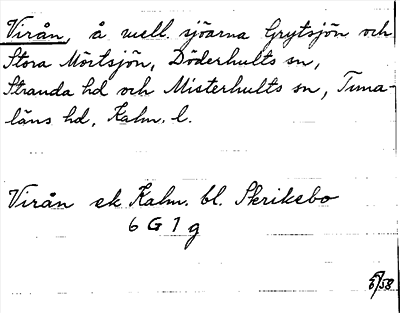 Virån, å mell. sjöarna Grytsjön och
Stora Mörtsjön, Döderhults sn,
Stranda hd och Misterhults sn, Tuna-
läns hd, Kalm. l.
Virån ek Kalm. bl. Skriksbo
6 G 1 g